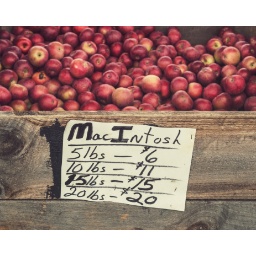 MacIntosh
5 lbs — $6
10 lbs — $11
15 lbs — $15
20 lbs — $20